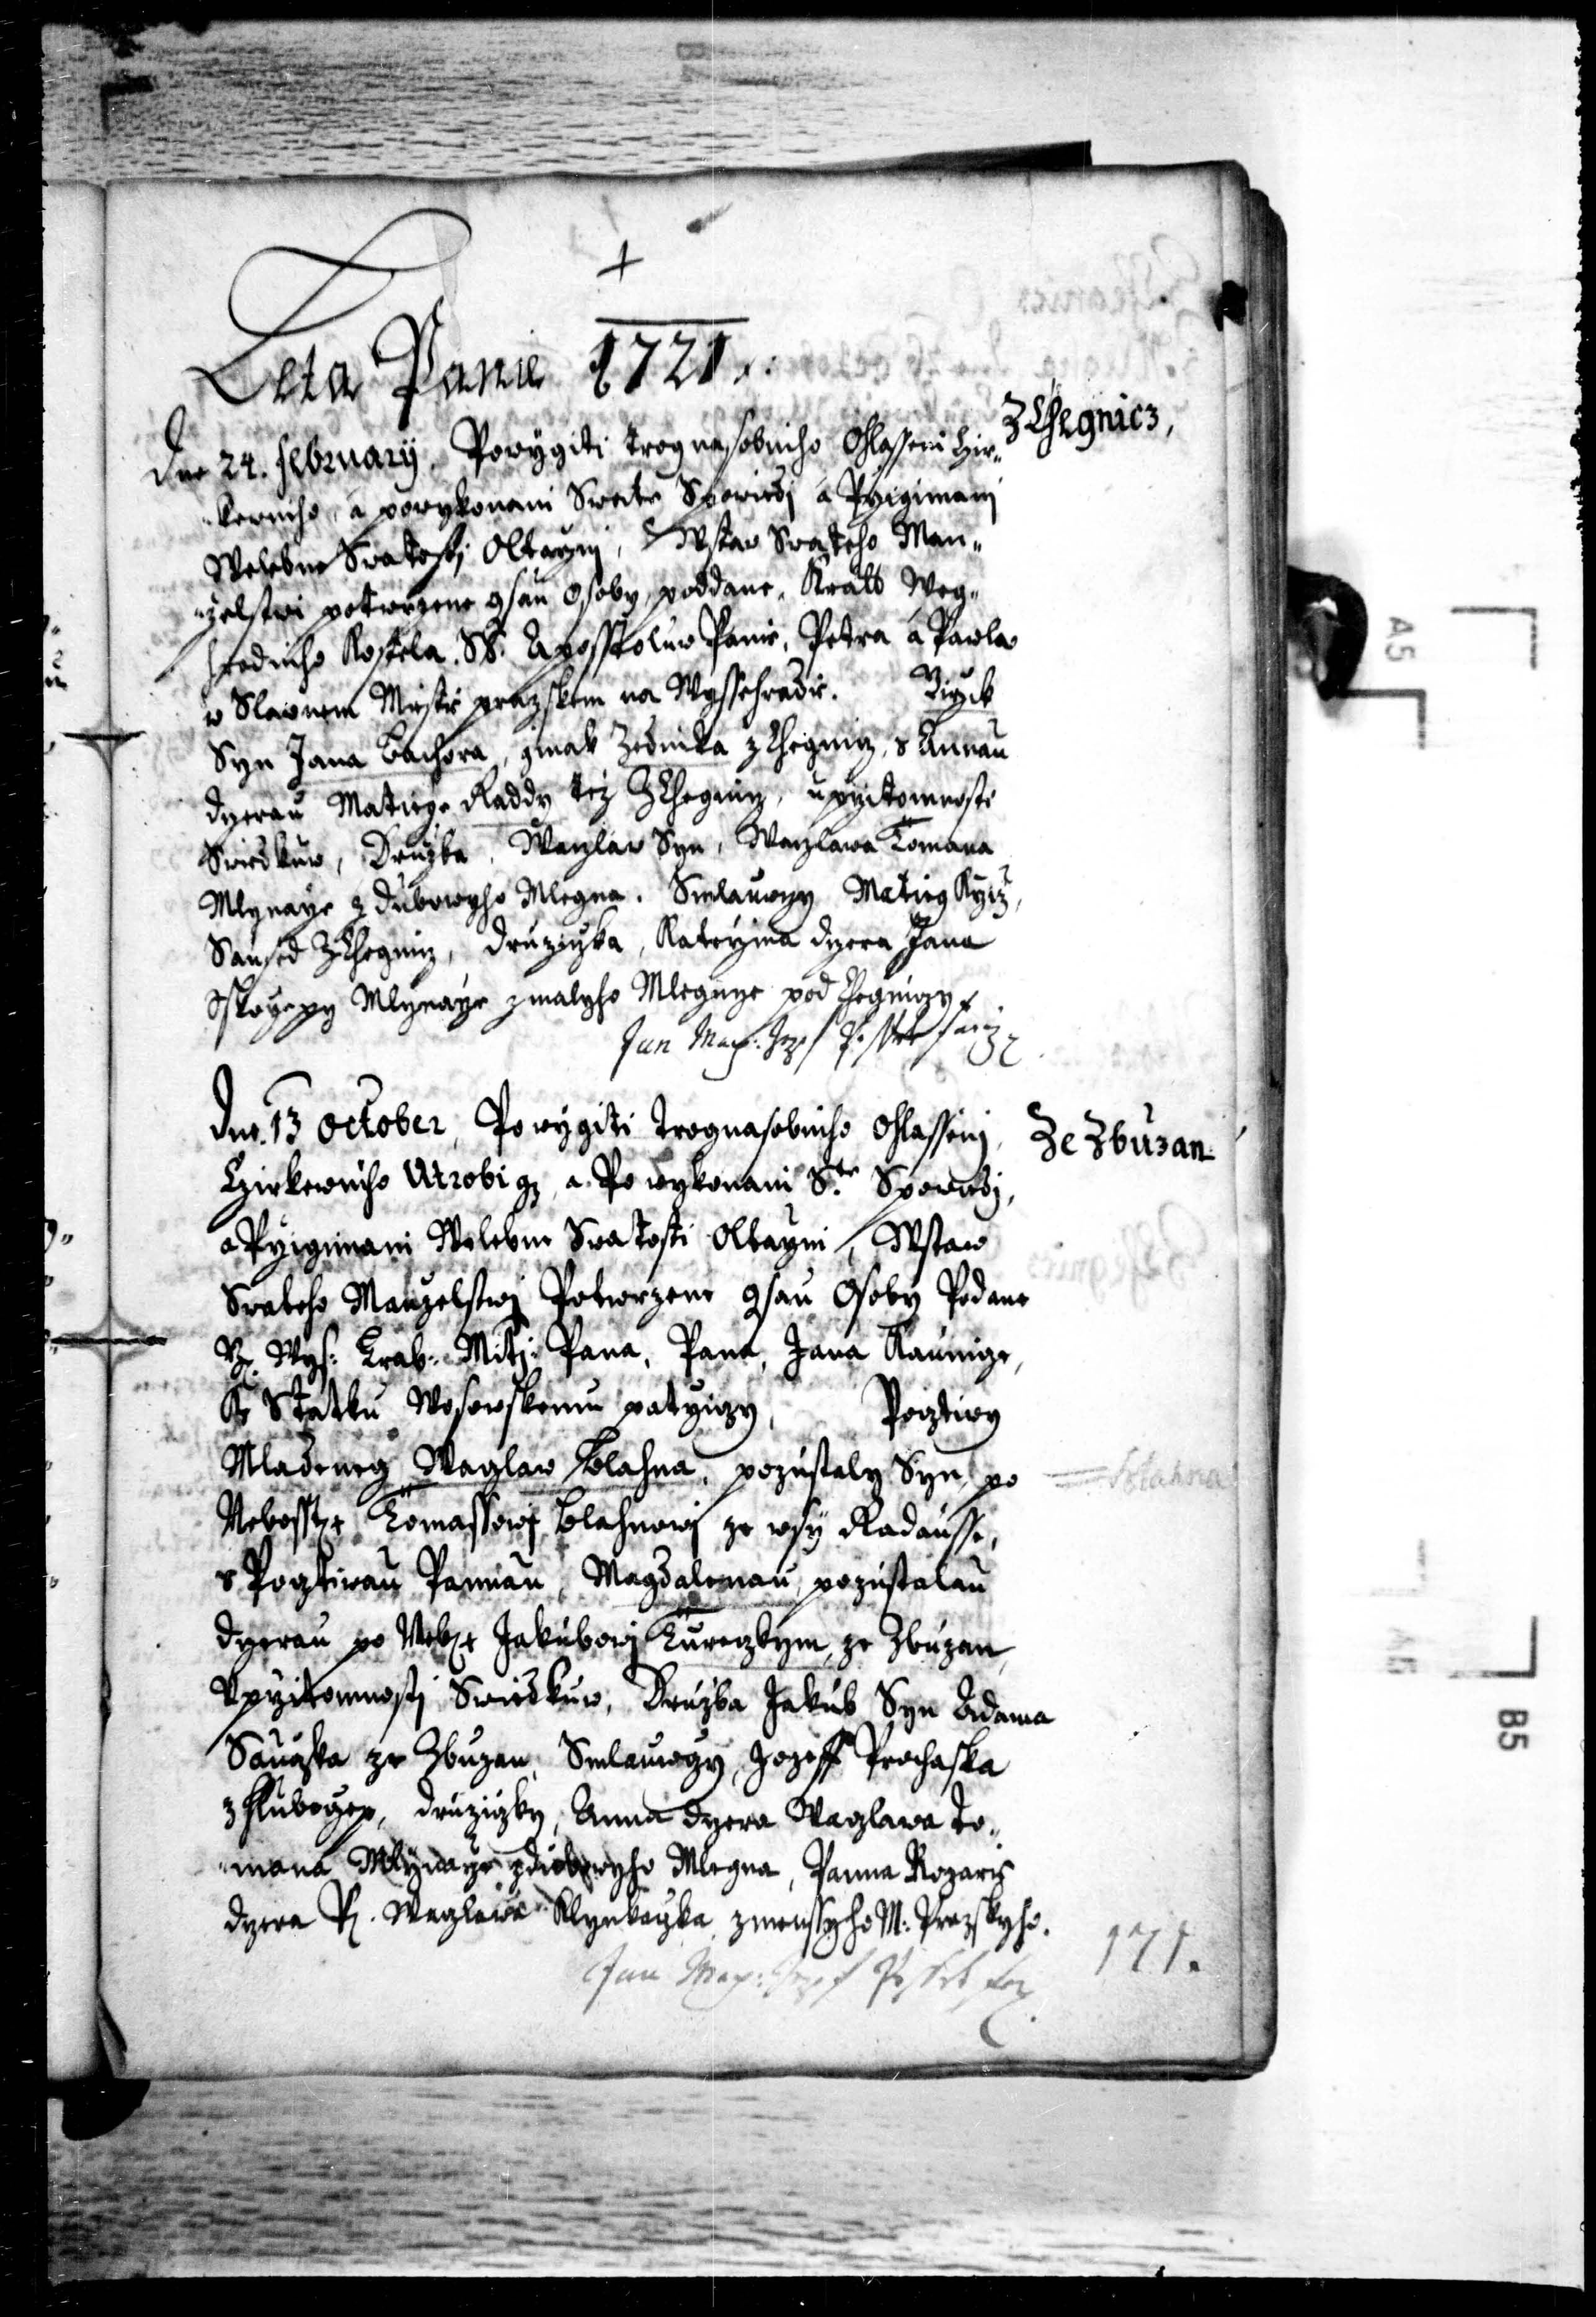 Leta Panie 1721.
Z Chegnicz,
Dne 24. february, Powygiti trognasobniho Ohlasseni Czir„
„kewniho, a powykonani Swate Spowiedi a Przigimani
Welebne Swatosti Oltarzni, W Staw Swateho Man„
„zelstwi potwrzene gsau Osoby poddane, Kral: Wey„
hradniho Kostela. SS. Aposstoluw Panie, Petra a Pawla
w Slawnem Miestie prazskem na Wyssehradie. Girzik
Syn Jana Bachora, ginak Zednika z Chegnicz, s Annau
dczerau Matiege Raddy tez Z Chegnicz, u przitomnosti
Swiedkuw, Druzba, Waczlaw Syn, Waczlawa Tomana
Mlynarze z Dubowyho Mlegna. Smlauwczy Matieg Krziz,
Saused Z Chegnicz, Druziczka, Katerzina dczera Jana
Mlynarze zmalyho Mlegnce pod Chegniczy
Jan Max: Jozef
Dne. 13 October, Po wygiti Trognasobniho Ohlasseni,
Ze Zbuzan
Czirkewniho Utrobigcz, a Po wykonani S.te Spowiedi,
a Przigimani Welebne Swatosti Oltarzni, W Staw
Swateho Manzelstwi Potwrzene gsau Osoby Podane
Wys: Hrab: Miti: Pana, Pana, Jana Kaunicze,
K Statku Wosowskemu patrziczy, Pocztiwy
Mladeneg Waczlaw Blahna, pozustaly Syn, po
Blahna
Nebosst: Tomassowi Blahnowi ze wsy Radausse,
s Pocztiwau Pannau, Magdalenau, pozustalau
dczerau po Neb: Jakubowi Tureczkym, ze Zbuzan,
U przitomnosti Swiedkuw, Druzba Jakub Syn Adama
Sauczka ze Zbuzan, Smlauwczy, Jozeff Prochaska
z Hluboczep, druziczky, Anna dczera Waczlawa To„
„mana Mlynarze z Dubowyho Mlegna, Panna Rozarie
dczera P. Waczlawa zmenssyho M: Prazskyho.
Jan Max: Jozef
171.
A5
B5